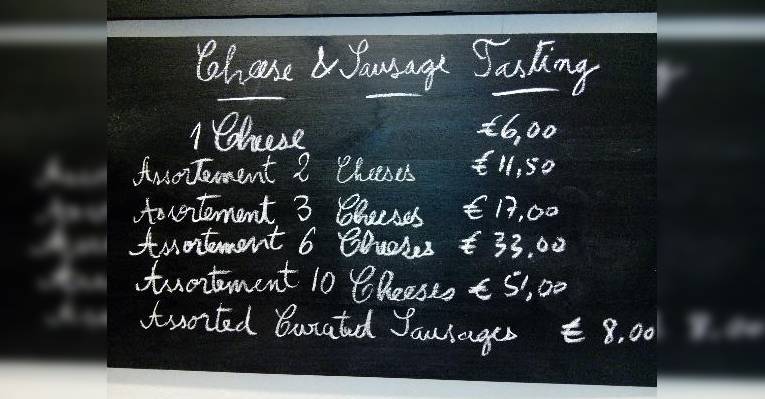 Cheese & Sausage Tasting
1 Cheese €6,00
Assortement 2 Cheeses €11,50
Assortement 3 Cheeses €17,00
Assortement 6 Cheeses €33,00
Assortement 10 Cheeses €51,00
Assorted Curated Sausages €8.00